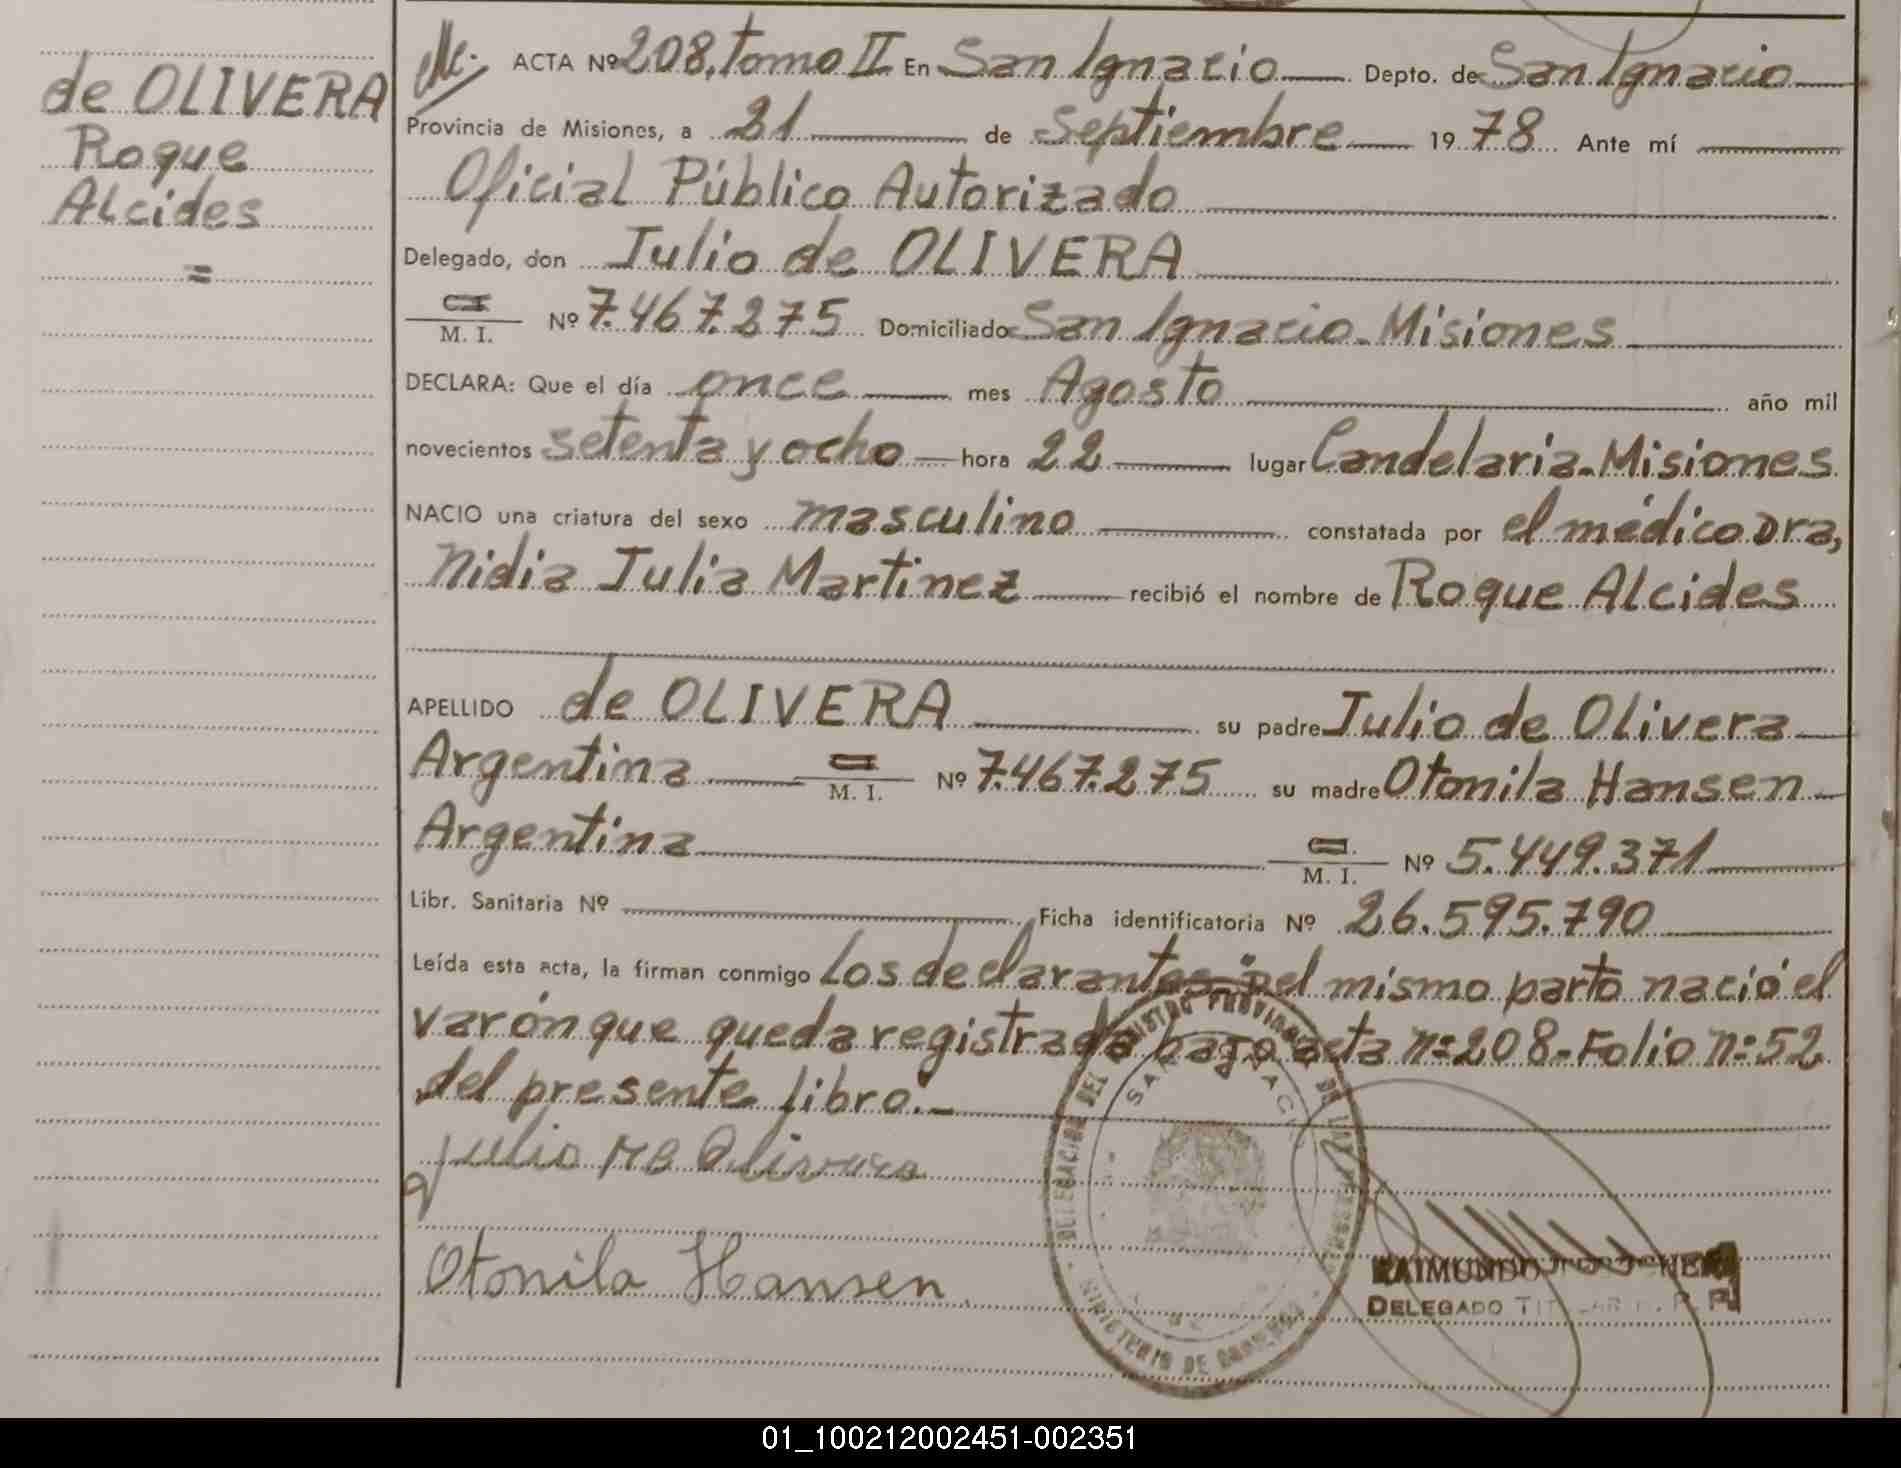 de OLIVERA
Roque
Alcides
=
ACTA Nº 208, Tomo II En San Ignacio Depto. de San Ignacio
Provincia de Misiones, a 21 de Septiembre 1978 Ante mí
Oficial Público Autorizado
Delegado, don Julio de OLIVERA
M. I. Nº 7.467.275 Domiciliado San Ignacio-Misiones
DECLARA: Que el día once mes Agosto año mil
novecientos setenta y ocho hora 22 lugar Candelaria-Misiones
NACIO una criatura del sexo masculino constatada por el médico Dra,
Nidia Julia Martinez recibió el nombre de Roque Alcides
APELLIDO de OLIVERA su padre Julio de Olivera
Argentina M. I. Nº 7.467.275 su madre Otonila Hansen
Argentina M. I. Nº 5.449.371
Libr. Sanitaria Nº Ficha identificatoria Nº 26.595.790
Leída esta acta, la firman conmigo Los declarantes-"Del mismo parto nació el
varón que queda registrado bajo acta nº 208-Folio nº 52
del presente libro".-
Julio de Olivera
Otonila Hansen
RAIMUNDO
DELEGADO TITULAR R. P. P.
01_100212002451-002351